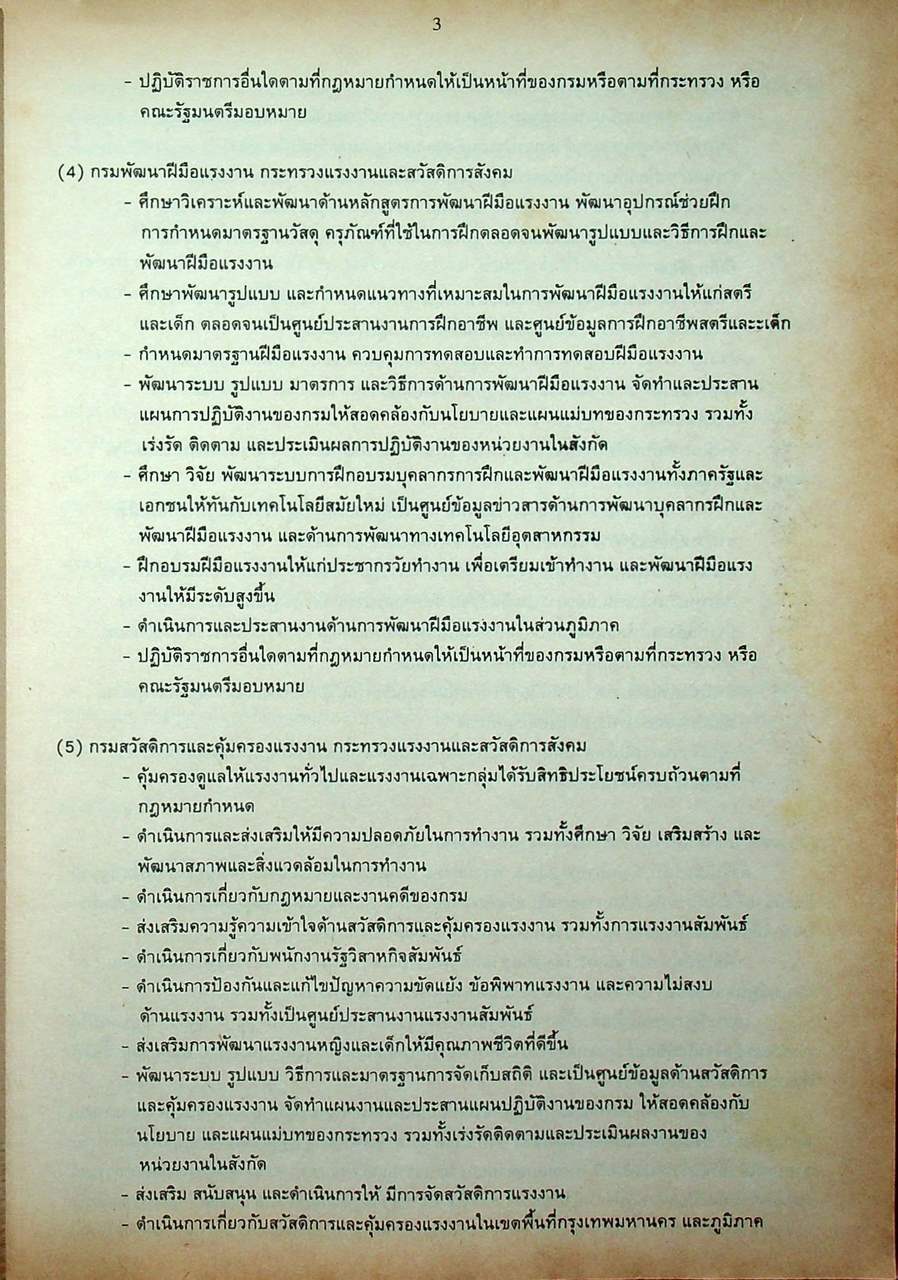 3
- ปฏิบัติราชการอื่นใดตามที่กฎหมายกำหนดให้เป็นหน้าที่ของกรมหรือตามที่กระทรวง หรือ
คณะรัฐมนตรีมอบหมาย
(4) กรมพัฒนาฝีมือแรงงาน กระทรวงแรงงานและสวัสดิการสังคม
- ศึกษาวิเคราะห์และพัฒนาด้านหลักสูตรการพัฒนาฝีมือแรงงาน พัฒนาอุปกรณ์ช่วยฝึก
การกำหนดมาตรฐานวัสดุ ครุภัณฑ์ที่ใช้ในการฝึกตลอดจนพัฒนารูปแบบและวิธีการฝึกและ
พัฒนาฝีมือแรงงาน
- ศึกษาพัฒนารูปแบบ และกำหนดแนวทางที่เหมาะสมในการพัฒนาฝีมือแรงงานให้แก่สตรี
และเด็ก ตลอดจนเป็นศูนย์ประสานงานการฝึกอาชีพ และศูนย์ข้อมูลการฝึกอาชีพสตรีและะเด็ก
- กำหนดมาตรฐานฝีมือแรงงาน ควบคุมการทดสอบและทำการทดสอบฝีมือแรงงาน
- พัฒนาระบบ รูปแบบ มาตรการ และวิธีการด้านการพัฒนาฝีมือแรงงาน จัดทำและประสาน
แผนการปฏิบัติงานของกรมให้สอดคล้องกับนโยบายและแผนแม่บทของกระทรวง รวมทั้ง
เร่งรัด ติดตาม และประเมินผลการปฏิบัติงานของหน่วยงานในสังกัด
- ศึกษา วิจัย พัฒนาระบบการฝึกอบรมบุคลากรการฝึกและพัฒนาฝีมือแรงงานทั้งภาครัฐและ
เอกชนให้ทันกับเทคโนโลยีสมัยใหม่ เป็นศูนย์ข้อมูลข่าวสารด้านการพัฒนาบุคลากรฝึกและ
พัฒนาฝีมือแรงงาน และด้านการพัฒนาทางเทคโนโลยีอุตสาหกรรม
- ฝึกอบรมฝีมือแรงงานให้แก่ประชากรวัยทำงาน เพื่อเตรียมเข้าทำงาน และพัฒนาฝีมือแรง
งานให้มีระดับสูงขึ้น
- ดำเนินการและประสานงานด้านการพัฒนาฝีมือแรงงานในส่วนภูมิภาค
- ปฏิบัติราชการอื่นใดตามที่กฎหมายกำหนดให้เป็นหน้าที่ของกรมหรือตามที่กระทรวง หรือ
คณะรัฐมนตรีมอบหมาย
(5) กรมสวัสดิการและคุ้มครองแรงงาน กระทรวงแรงงานและสวัสดิการสังคม
- คุ้มครองดูแลให้แรงงานทั่วไปและแรงงานเฉพาะกลุ่มได้รับสิทธิประโยชน์ครบถ้วนตามที่
กฎหมายกำหนด
- ดำเนินการและส่งเสริมให้มีความปลอดภัยในการทำงาน รวมทั้งศึกษา วิจัย เสริมสร้าง และ
พัฒนาสภาพและสิ่งแวดล้อมในการทำงาน
- ดำเนินการเกี่ยวกับกฎหมายและงานคดีของกรม
- ส่งเสริมความรู้ความเข้าใจด้านสวัสดิการและคุ้มครองแรงงาน รวมทั้งการแรงงานสัมพันธ์
- ดำเนินการเกี่ยวกับพนักงานรัฐวิสาหกิจสัมพันธ์
- ดำเนินการป้องกันและแก้ไขปัญหาความขัดแย้ง ข้อพิพาทแรงงาน และความไม่สงบ
ด้านแรงงาน รวมทั้งเป็นศูนย์ประสานงานแรงงานสัมพันธ์
- ส่งเสริมการพัฒนาแรงงานหญิงและเด็กให้มีคุณภาพชีวิตที่ดีขึ้น
- พัฒนาระบบ รูปแบบ วิธีการและมาตรฐานการจัดเก็บสถิติ และเป็นศูนย์ข้อมูลด้านสวัสดิการ
และคุ้มครองแรงงาน จัดทำแผนงานและประสานแผนปฏิบัติงานของกรม ให้สอดคล้องกับ
นโยบาย และแผนแม่บทของกระทรวง รวมทั้งเร่งรัดติดตามและประเมินผลงานของ
หน่วยงานในสังกัด
- ส่งเสริม สนับสนุน และดำเนินการให้ มีการจัดสวัสดิการแรงงาน
- ดำเนินการเกี่ยวกับสวัสดิการและคุ้มครองแรงงานในเขตพื้นที่กรุงเทพมหานคร และภูมิภาค